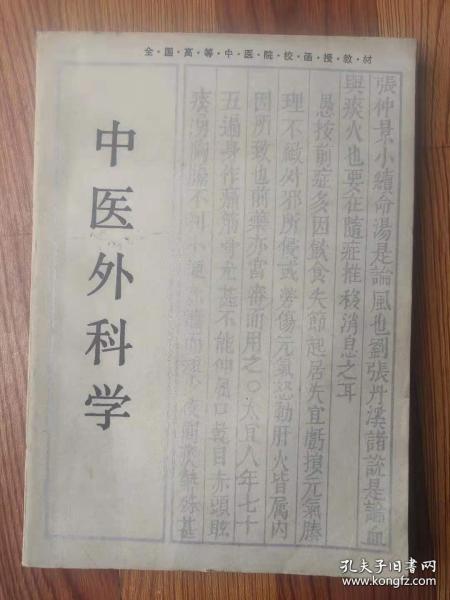 全·国·高·等·中·医·院·校·函·授·教·材
中医外科学
張仲景小續命湯是論風也劉張丹溪諸説是論血
與痰火也要在隨症推移消息之耳
愚按前症多因飲食失節起居失宜虧損元氣腠
理不緻外邪所侵或勞傷元氣怒動肝火皆屬内
因所致也前藥亦當審而用之○太宜人年七十
五遍身作痛筋骨尤甚不能伸屈口乾目赤頭眩
痰湧胸膈不利小便
孔夫子旧书网
www.kongfz.com